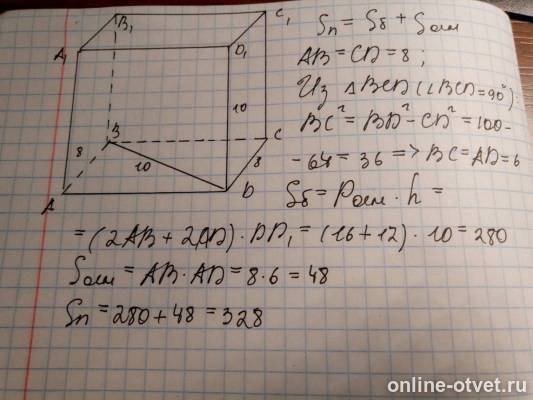 B₁
C₁
A₁
D₁
10
B
C
8
10
8
A
D
Sп = Sб + Sосн
AB = CD = 8 ;
Из △BCD (∠BCD=90°):
BC² = BD² - CD² = 100 -
- 64 = 36 => BC = AD = 6
Sб = Pосн · h =
= (2AB + 2AD) · DD₁ = (16+12) · 10 = 280
Sосн = AB · AD = 8 · 6 = 48
Sп = 280 + 48 = 328
online-otvet.ru